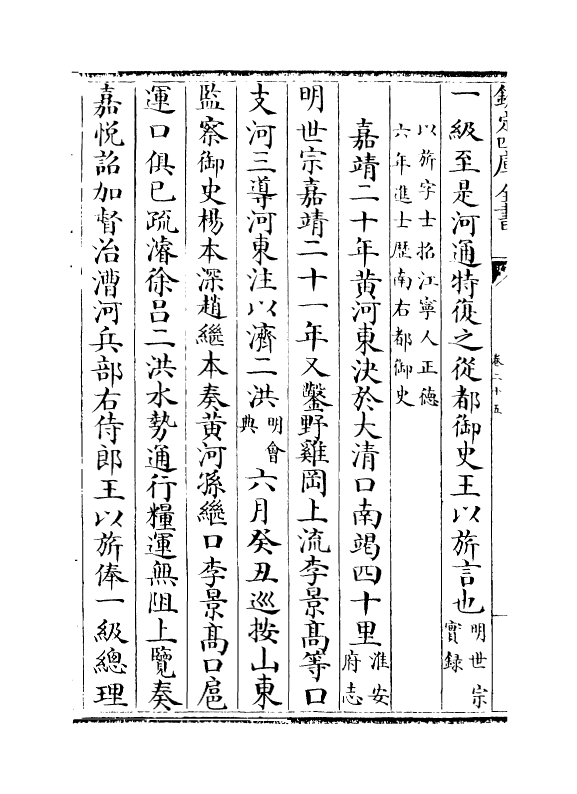 欽定四庫全書
卷二十五
一級至是河通特復之從都御史王以旂言也明世宗實録
以旂字士招江寧人正德
六年進士歴南右都御史
嘉靖二十年黄河東決於大清口南竭四十里淮安府志
明世宗嘉靖二十一年又鑿野雞岡上流李景髙等口
支河三導河東注以濟二洪明會典六月癸丑巡按山東
監察御史楊本深趙繼本奏黄河孫繼口李景髙口扈
運口俱已疏濬徐吕二洪水勢通行糧運無阻上覽奏
嘉悦詔加督治漕河兵部右侍郎王以旂俸一級總理